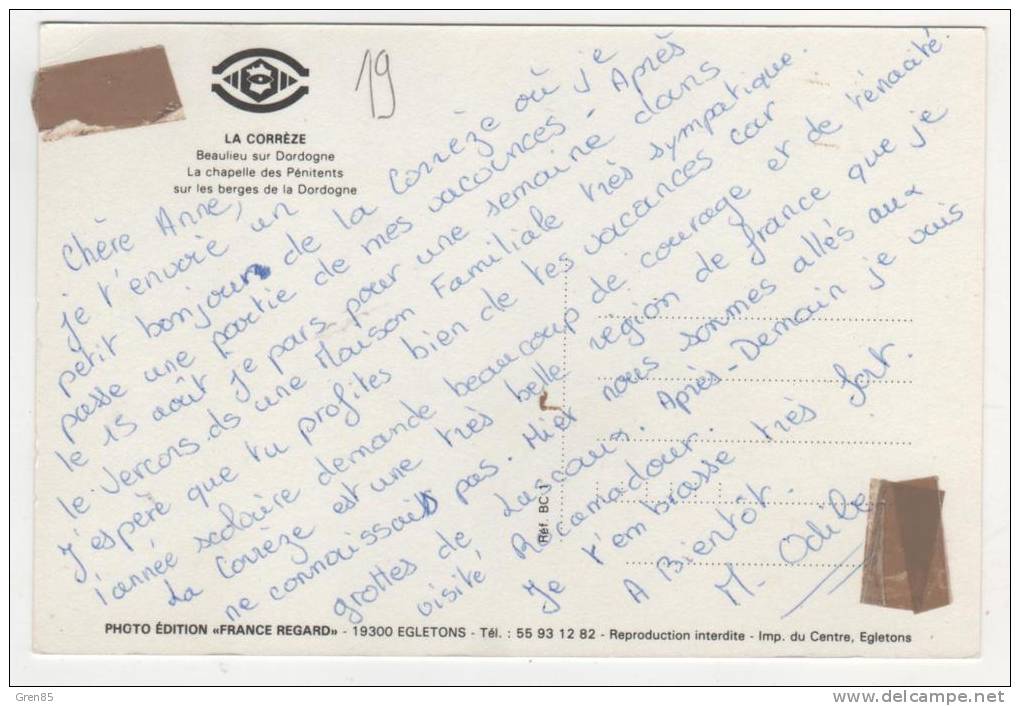 19
LA CORRÈZE
Beaulieu sur Dordogne
La chapelle des Pénitents
sur les berges de la Dordogne
Chère Anne,
je t'envoie un
petit bonjour de la Corrèze où je
passe une partie de mes vacances. Après
le 15 août je pars pour une semaine dans
le Vercors ds une Maison Familiale très sympatique.
J'espère que tu profites bien de tes vacances car
l'année scolaire demande beaucoup de courage et de ténacité
La Corrèze est une très belle région de france que je
ne connaissais pas. Hier nous sommes allés aux
grottes de Lascaux. Après-Demain je vais
visité Rocamadour.
Je t'embrasse très fort.
A Bientôt.
M. Odile
Réf. BC 1
PHOTO ÉDITION «FRANCE REGARD» - 19300 EGLETONS - Tél. : 55 93 12 82 - Reproduction interdite - Imp. du Centre, Egletons
Gren85
www.delcampe.net